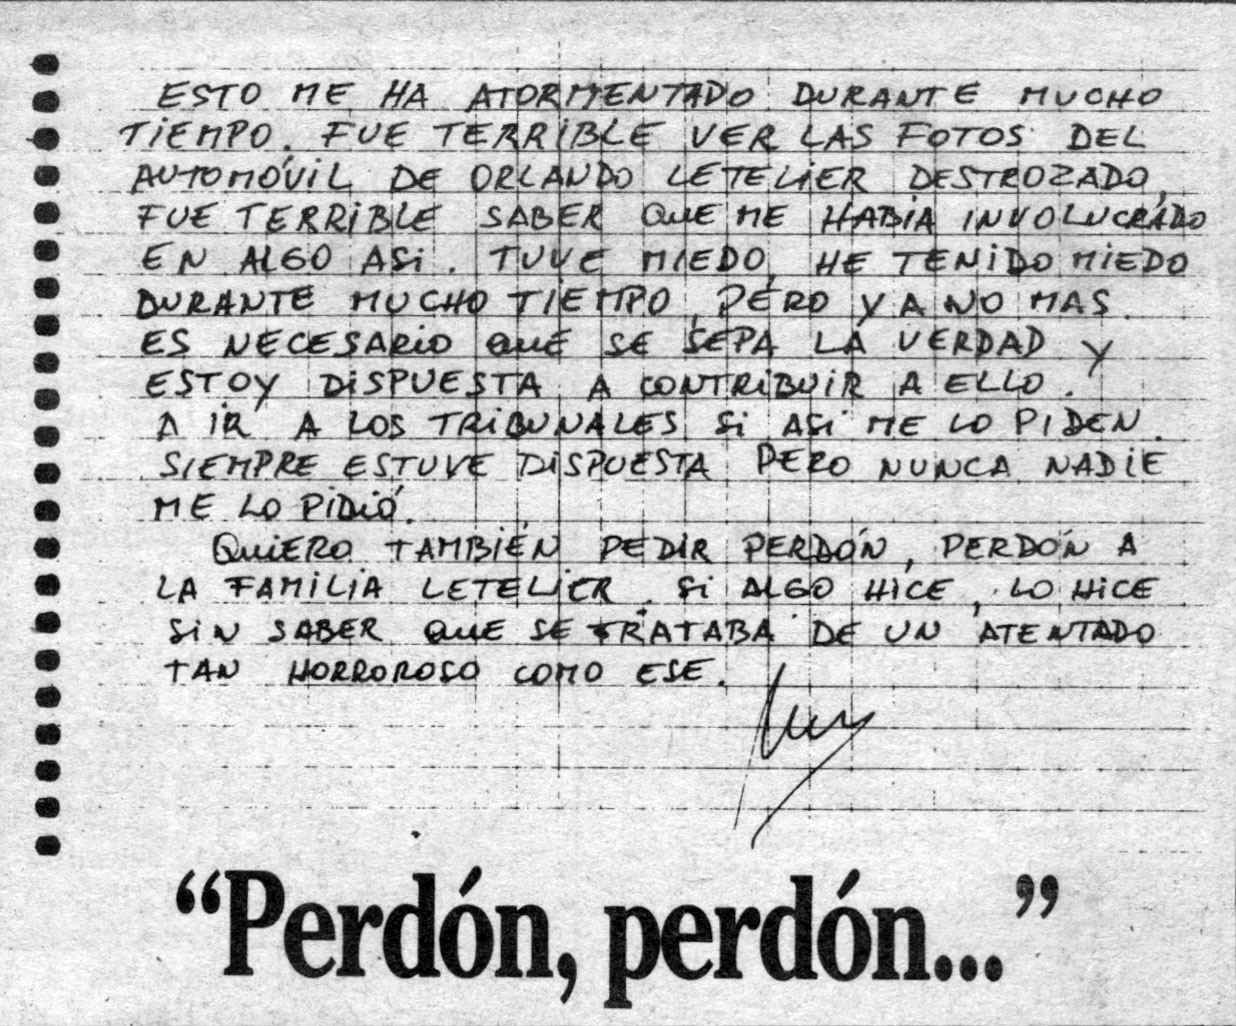 ESTO ME HA ATORMENTADO DURANTE MUCHO
TIEMPO. FUE TERRIBLE VER LAS FOTOS DEL
AUTOMÓVIL DE ORLANDO LETELIER DESTROZADO,
FUE TERRIBLE SABER QUE ME HABIA INVOLUCRADO
EN ALGO ASI. TUVE MIEDO, HE TENIDO MIEDO
DURANTE MUCHO TIEMPO, PERO YA NO MAS.
ES NECESARIO QUE SE SEPA LA VERDAD Y
ESTOY DISPUESTA A CONTRIBUIR A ELLO.
A IR A LOS TRIBUNALES SI ASI ME LO PIDEN.
SIEMPRE ESTUVE DISPUESTA PERO NUNCA NADIE
ME LO PIDIÓ.
QUIERO TAMBIÉN PEDIR PERDÓN, PERDÓN A
LA FAMILIA LETELIER. SI ALGO HICE, LO HICE
SIN SABER QUE SE TRATABA DE UN ATENTADO
TAN HORROROSO COMO ESE.
“Perdón, perdón...”